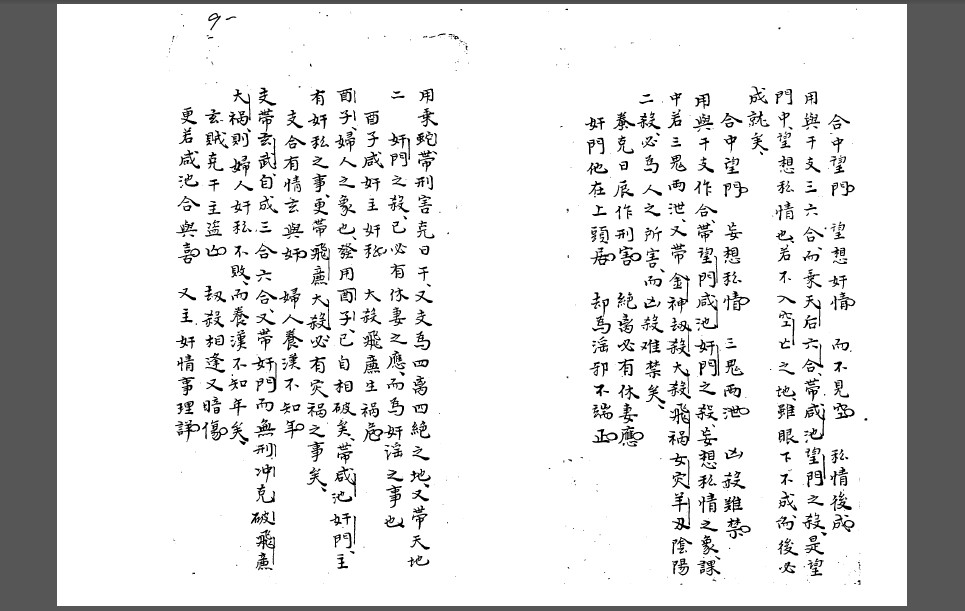 合中望門　望想奸情　而不見空　私情後成
用與干支三六合而乘天后六合帶咸池望門之殺是望
門中望想私情也若不入空亡之地雖眼下不成尚後必
成就矣
合中望門　妄想私情　三鬼两泄　凶殺難禁
用與干支作合帶望門咸池奸門之殺妄想私情之象課
中若三鬼两泄又帶金神刼殺大殺飛禍女灾羊刃陰陽
二殺必為人之所害而凶殺难禁矣
克日辰作刑害　絶离必有休妻應
奸門他在上頭居　却為淫邪不端正
用乘蛇帶刑害克日干又支為四离四絶之地又帶天地
二　奸門之殺已必有休妻之應而為奸淫之事也
酉子咸奸主奸私　大殺飛廉生禍危
酉子婦人之象也發用酉子已自相破矣帶咸池奸門主
有奸私之事更帶飛廉大殺必有灾禍之事矣
支合有情玄與奸　婦人養漢不知年
支帶玄武自成三合六合又帶奸門而無刑冲克破飛廉
大禍則婦人奸私不敗而養漢不知年矣
玄賊克干主盗凶　刼殺相逢又暗傷
更若咸池合與喜　又主奸情事理詳
9-